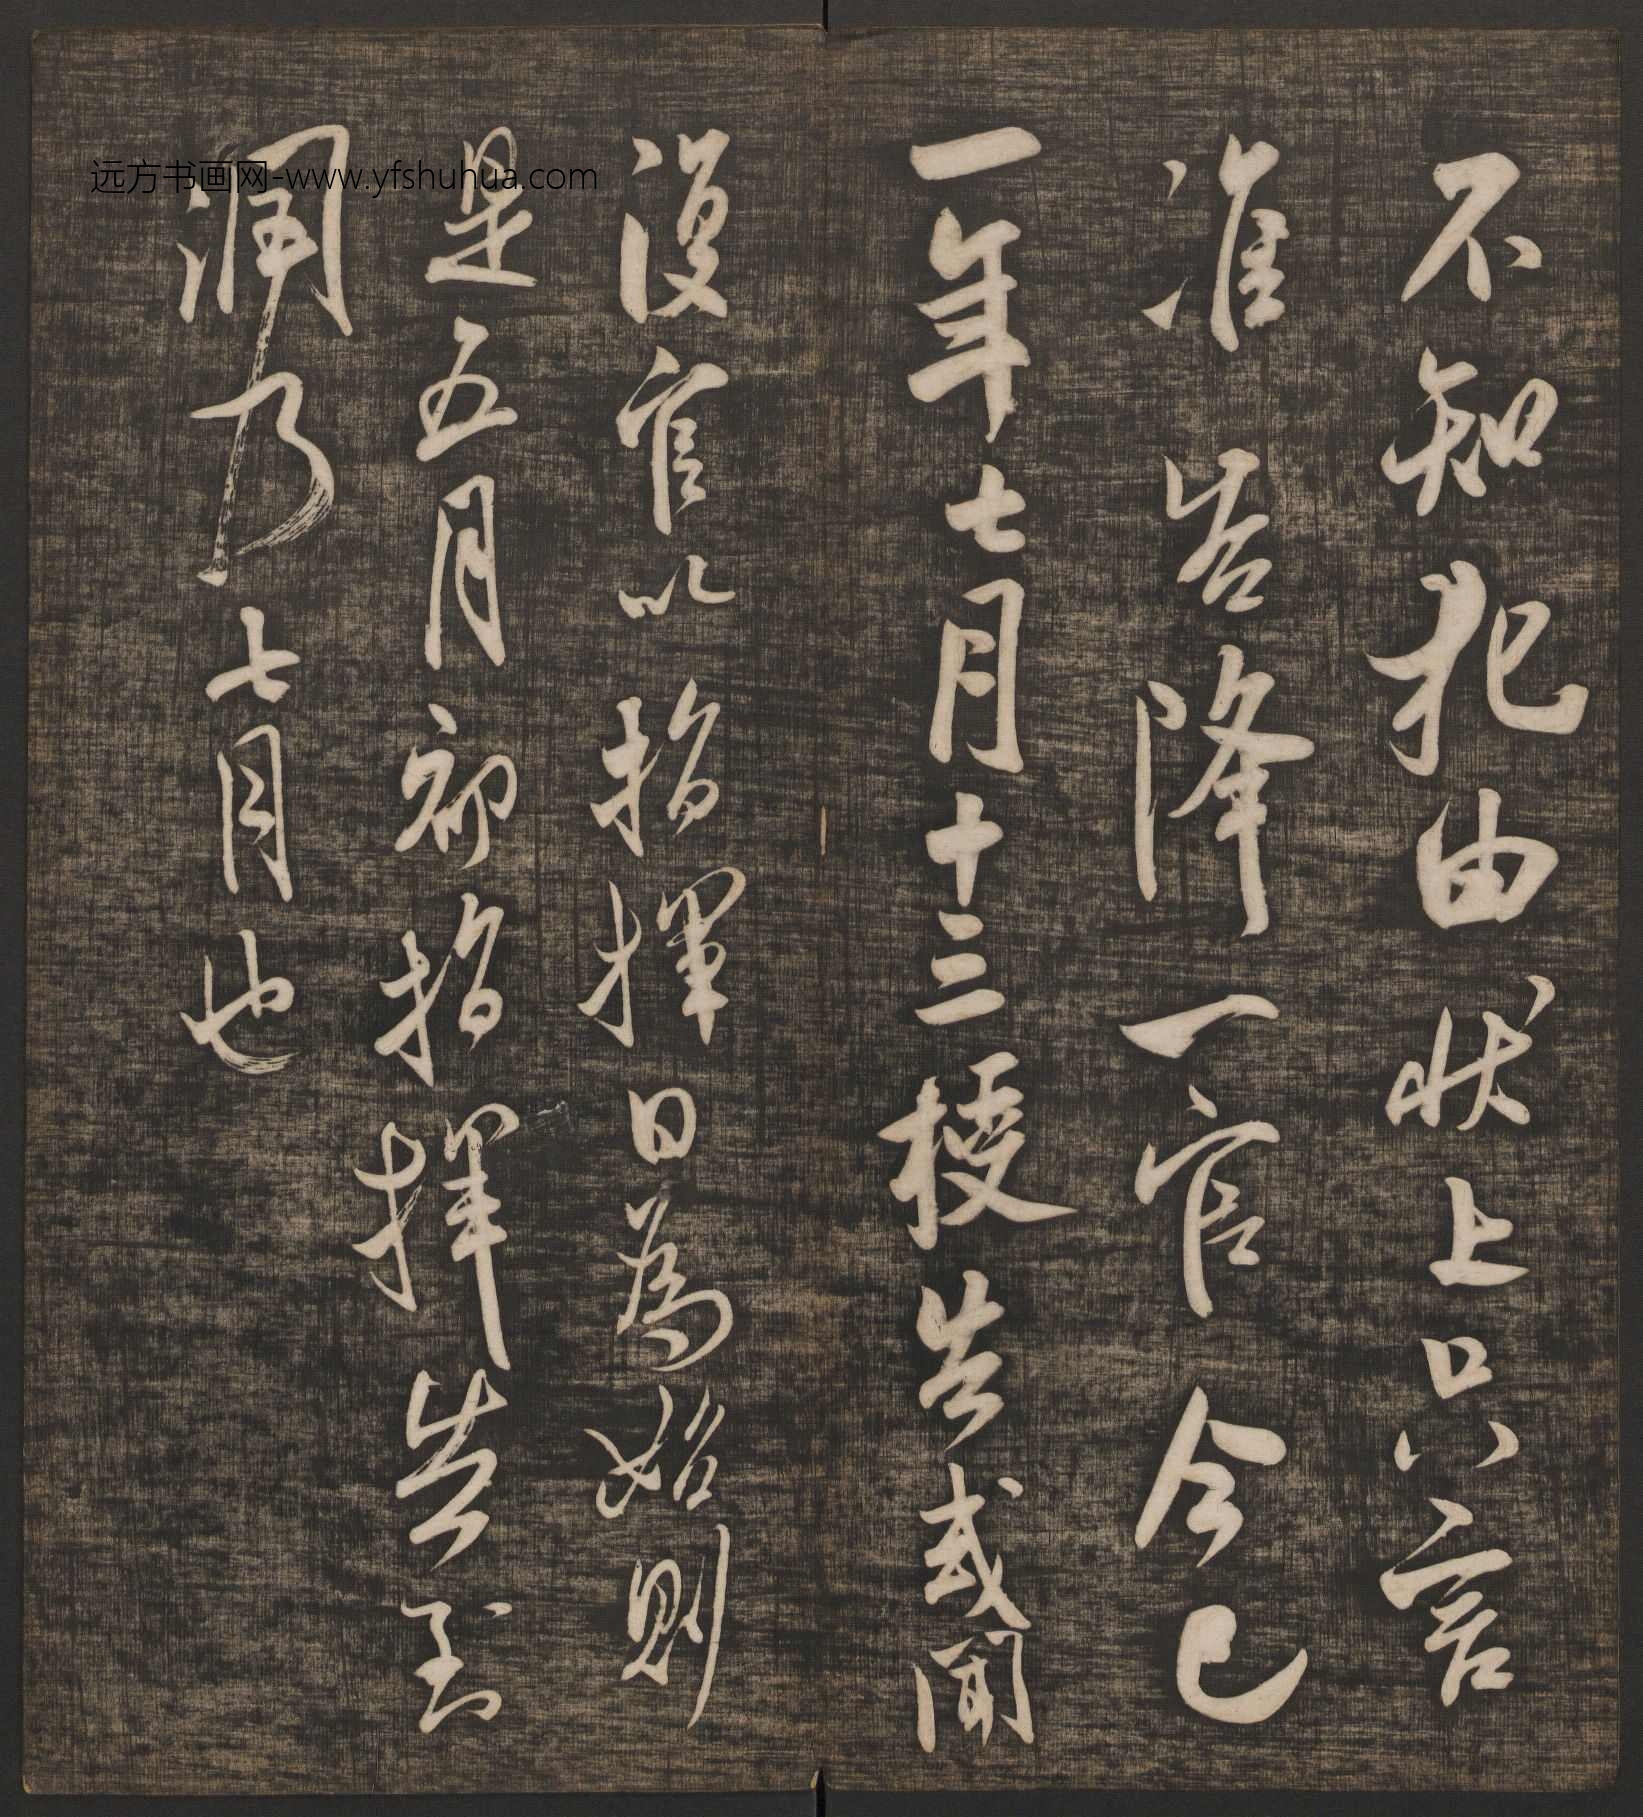 不知犯由状上只言
准告降一官今已
一年七月十三授告或闻
復官以指揮日為始則
是五月初指揮告到
潤乃七月也
远方书画网-www.yfshuhua.com